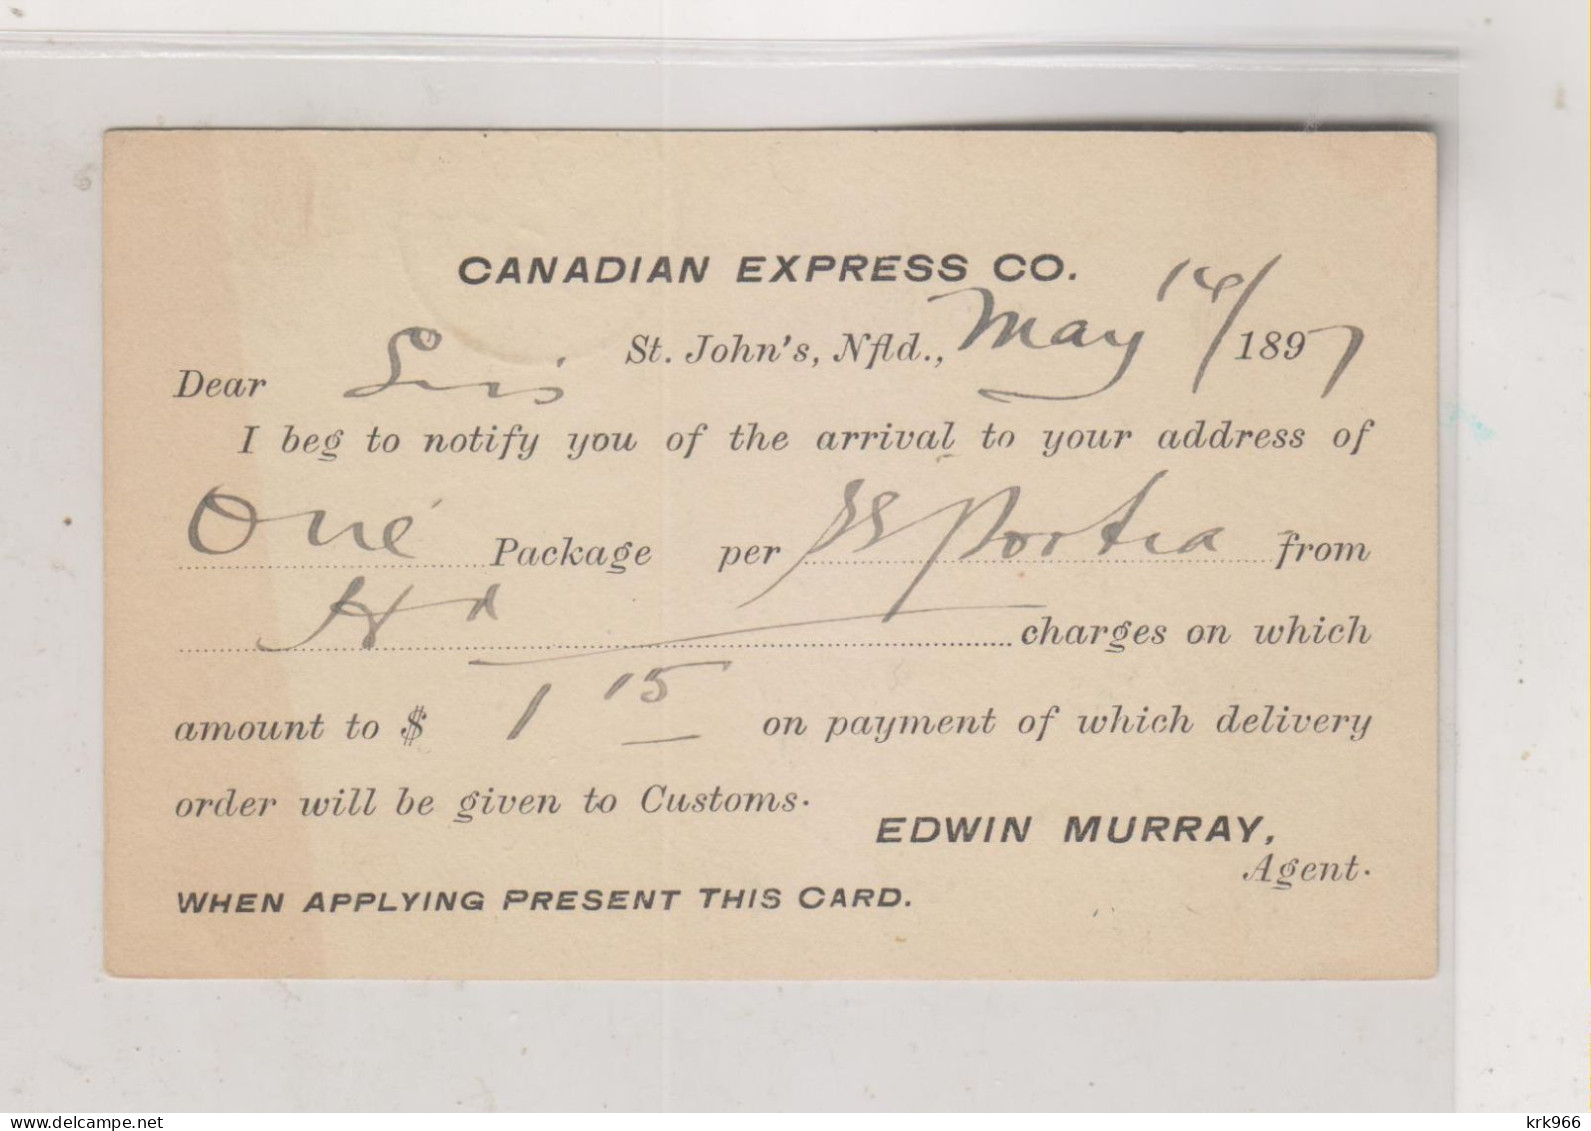 CANADIAN EXPRESS CO.
St. John's, Nfld., May 14/1897
Dear Sir
I beg to notify you of the arrival to your address of
One Package per SS Portia from
charges on which
amount to $ 1 15 on payment of which delivery
order will be given to Customs.
EDWIN MURRAY,
Agent.
WHEN APPLYING PRESENT THIS CARD.
delcampe.net
krk966